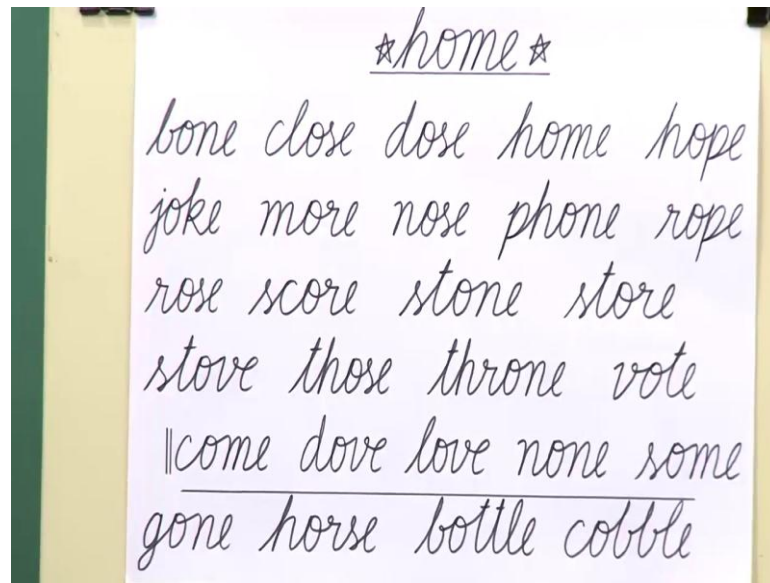 ☆home☆
bone close dose home hope
joke more nose phone rope
rose score stone store
stove those throne vote
||come dove love none some
gone horse bottle cobble